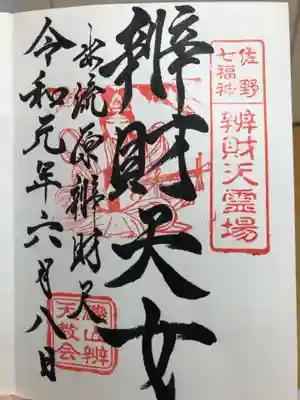 佐野
七福神
辨財天霊場
辨財天女
水流原辨財天
令和元年六月八日
天教会